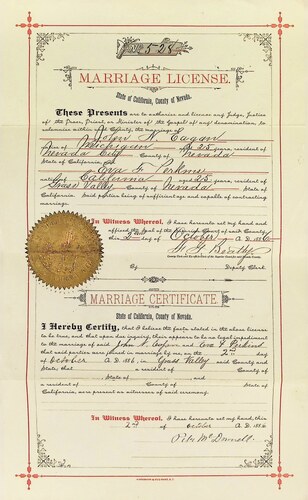 No 528
MARRIAGE LICENSE.
State of California, County of Nevada.
These Presents are to authorize and license any Judge, Justice
of the Peace, Priest, or Minister of the Gospel of any denomination, to
solemnize within said County, the marriage of
John H. Eagan
native of Michigan aged years, resident of
Nevada City County of Nevada
Eva F. Perkins
native of California aged 25 years, resident of
Grass Valley County of Nevada
California. Said parties being of sufficient age and capable of contracting
marriage.
In Witness Whereof, I have hereunto set my hand and
affixed the Seal of the Superior Court of said County
this 2nd day of October A. D. 1886
By Deputy Clerk
MARRIAGE CERTIFICATE
State of California, County of Nevada.
I Hereby Certify, that I believe the facts stated in the above license
to be true, and that upon due inquiry, there appears to be no legal impediment
to the marriage of said John H. Eagan and Eva F. Perkins
that said parties were joined in marriage by me, on the 2nd day
of October A. D. 1886, in Grass Valley said County and
State; that a resident of County of
State of and
a resident of County of State of
California, are present as witnesses of said ceremony.
In Witness Whereof, I have hereunto set my hand, this
2nd of October A. D. 1886